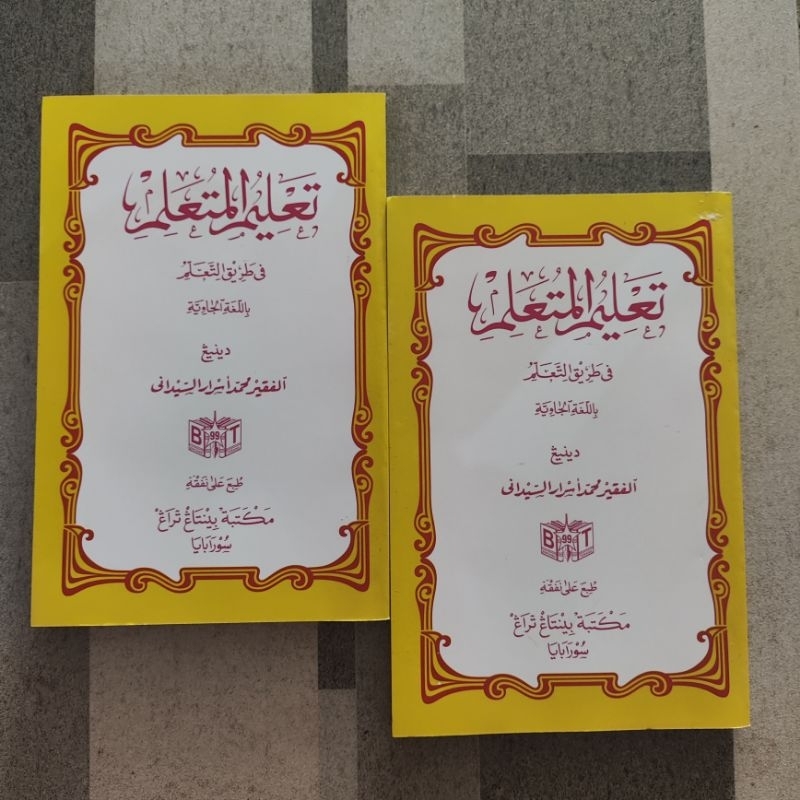 تَعْلِيمُ المُتَعَلِّمْ
فى طَرِيْقِ التَّعَلُّمْ
بِاللُّغَةِ الْجَاوِيَّةِ
دينيڠ
الفقير محمد أسرار السّيدانى
B 99 T
طُبِعَ عَلَى نَفَقَهِ
مَكْتَبَة بِينْتَاڠْ تْرَاڠْ
سُوْرَابَايَا
تَعْلِيمُ المُتَعَلِّمْ
فى طَرِيْقِ التَّعَلُّمْ
بِاللُّغَةِ الْجَاوِيَّةِ
دينيڠ
الفقير محمد أسرار السّيدانى
B 99 T
طُبِعَ عَلَى نَفَقَهِ
مَكْتَبَة بِينْتَاڠْ تْرَاڠْ
سُوْرَابَايَا